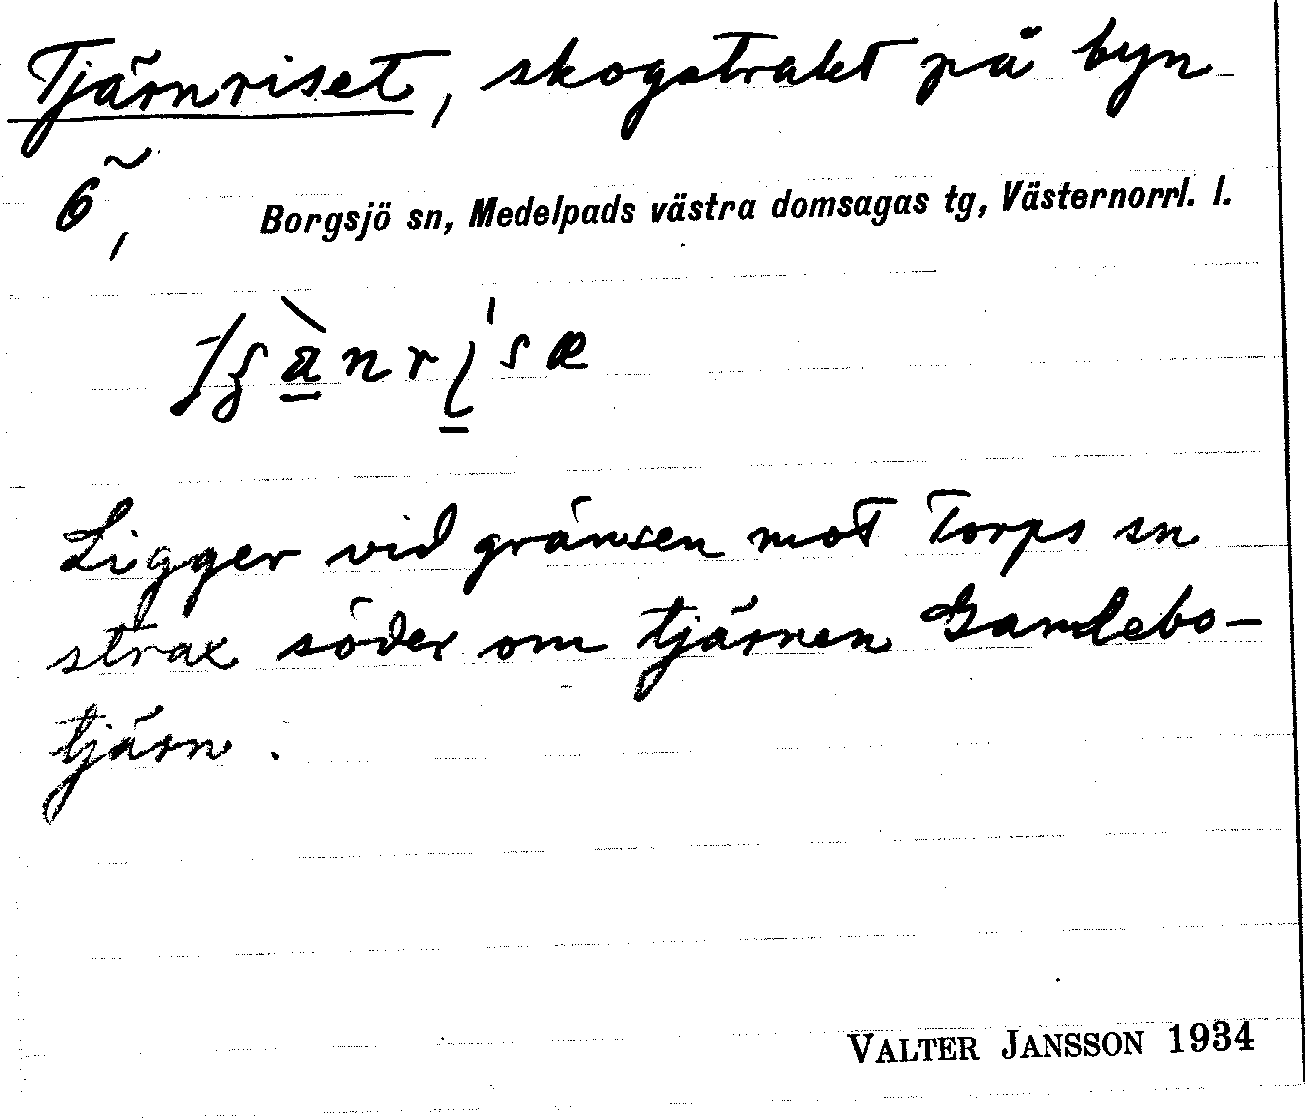 Tjärnriset, skogstrakt på byn
Ö,
Borgsjö sn, Medelpads västra domsagas tg, Västernorrl. l.
Ligger vid gränsen mot Torps sn
strax söder om tjärnen Gamlebo-
tjärn.
VALTER JANSSON 1934